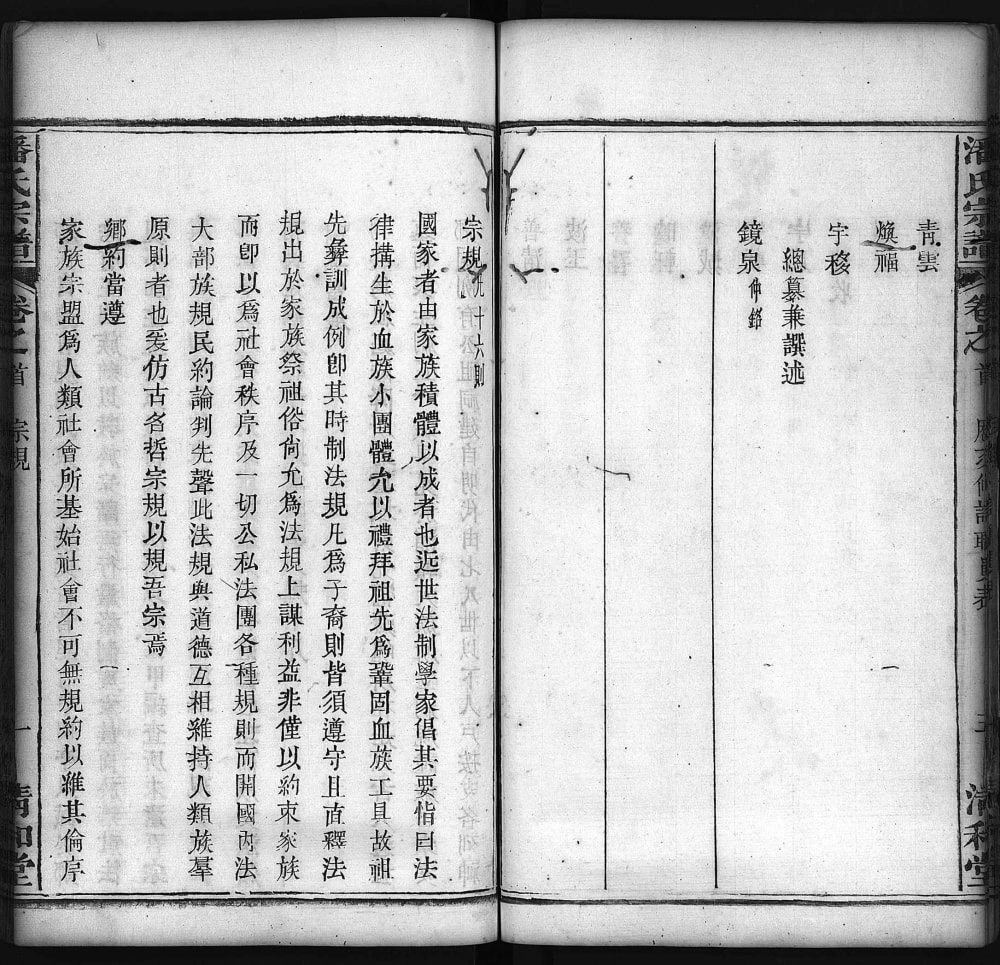 潘氏宗譜 卷之首 清和堂
青雲
煥福
宇移
總纂兼譔述
鏡泉仲鎔
宗規凡十六則
國家者由家族積體以成者也近世法制學家倡其要恉曰法
律搆生於血族小團體允以禮拜祖先爲鞏固血族工具故祖
先彝訓成例卽其時制法規凡爲子裔則皆須遵守且直釋法
規出於家族祭祖俗尙允爲法規上謀利益非僅以約束家族
而卽以爲社會秩序及一切公私法團各種規則而開國內法
大部族規民約論判先聲此法規與道德互相維持人類族羣
原則者也爰仿古名哲宗規以規吾宗焉
鄉約當遵
家族宗盟爲人類社會所基始社會不可無規約以維其倫序
潘氏宗譜 卷之首 宗規 一 清和堂